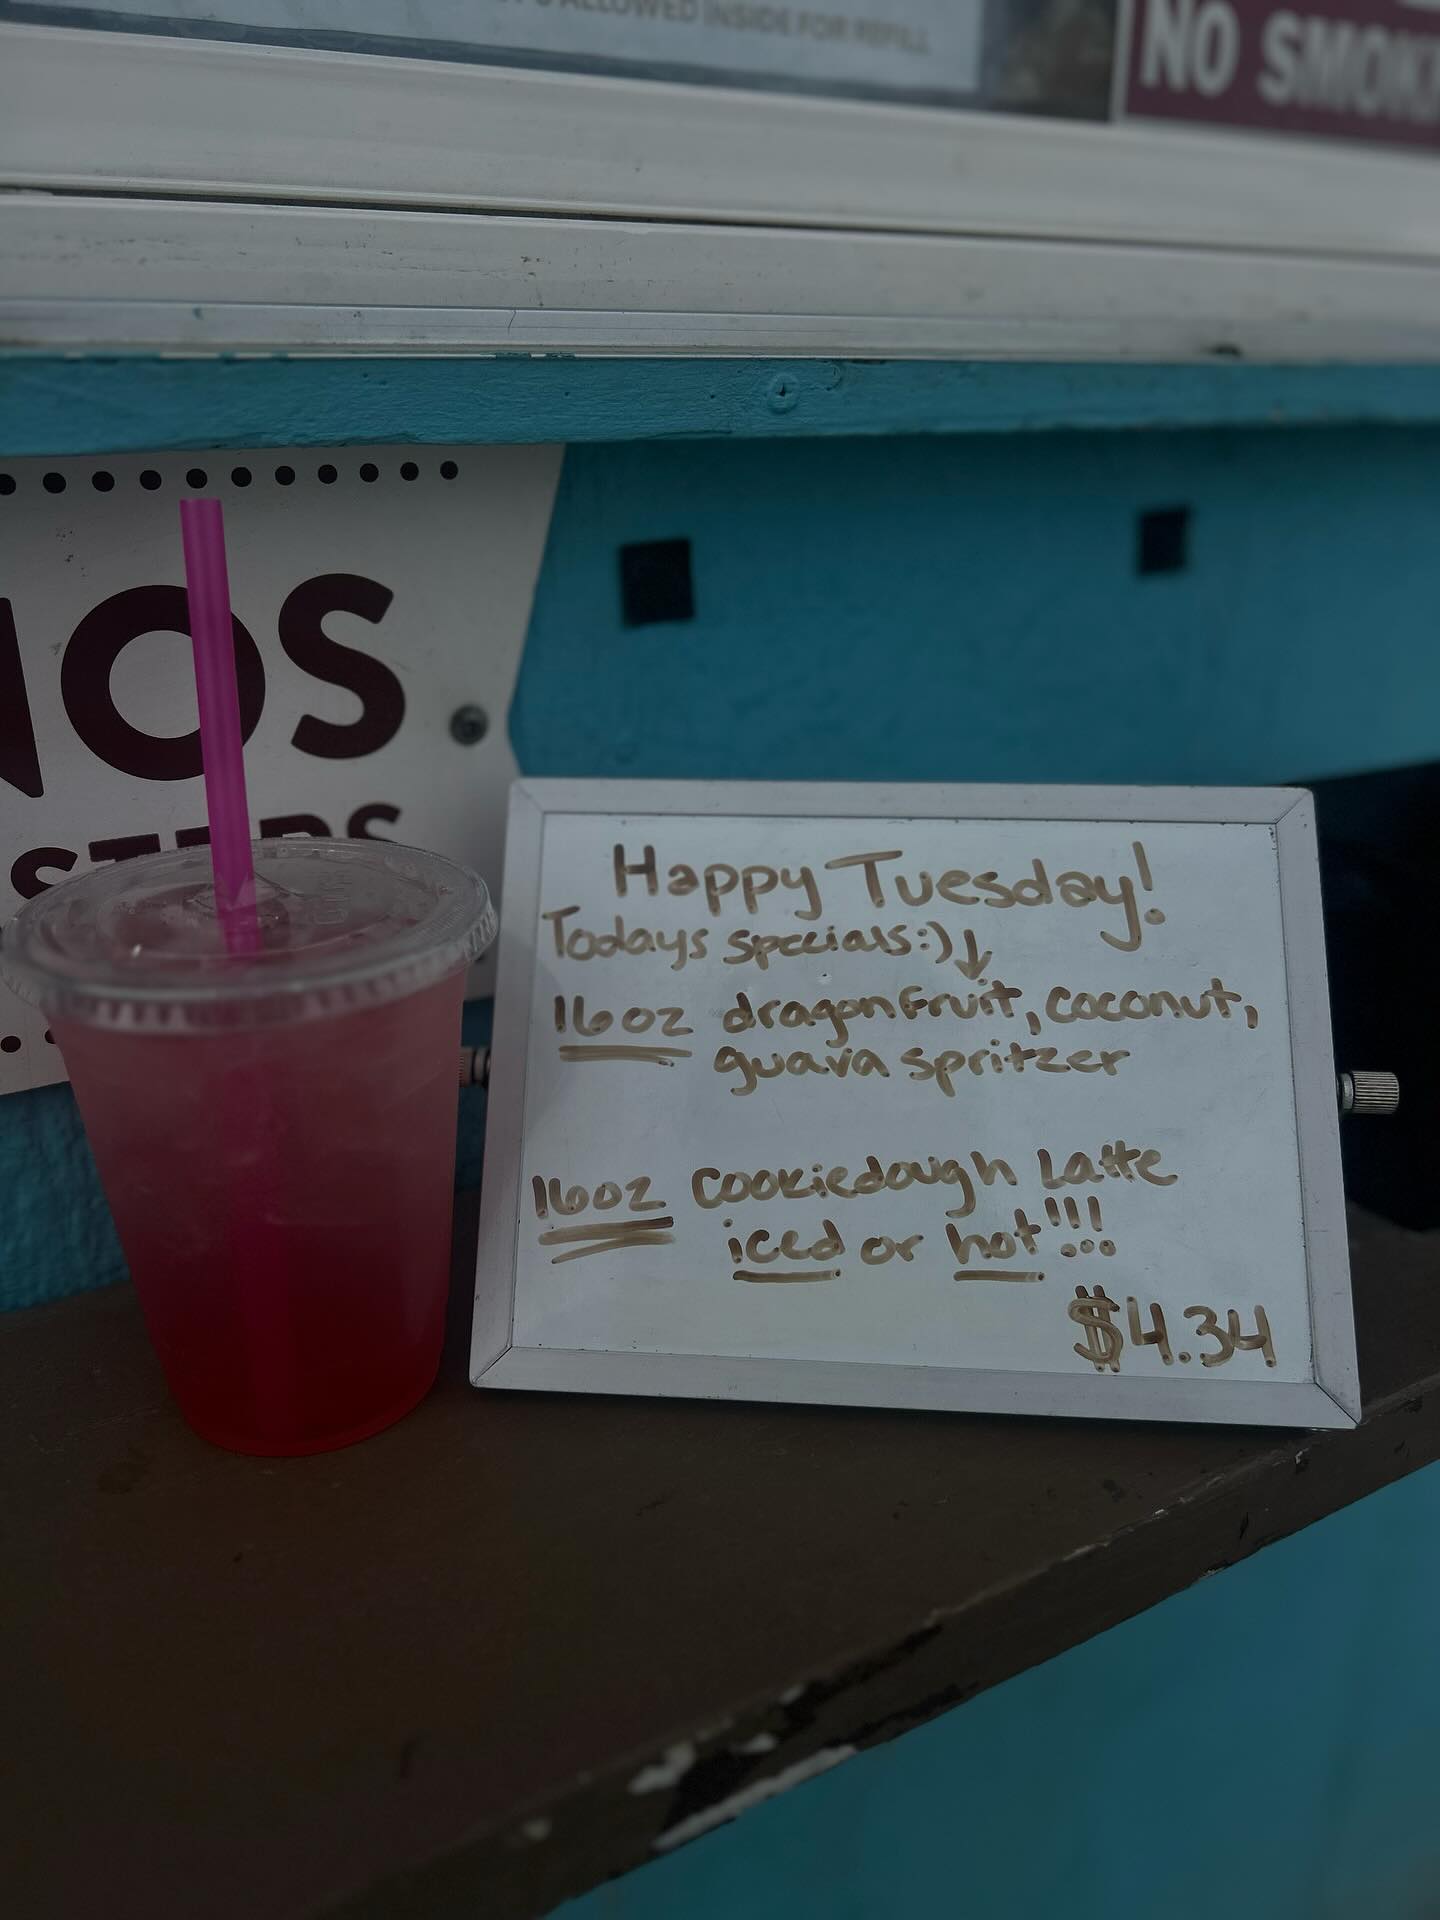 ALLOWED INSIDE FOR REFILL
NO SMOKI
NOS
STERS
Happy Tuesday!
Todays specials:) ↓
16oz dragonfruit, coconut,
guava spritzer
16oz cookiedough Latte
iced or hot!!!
$4.34